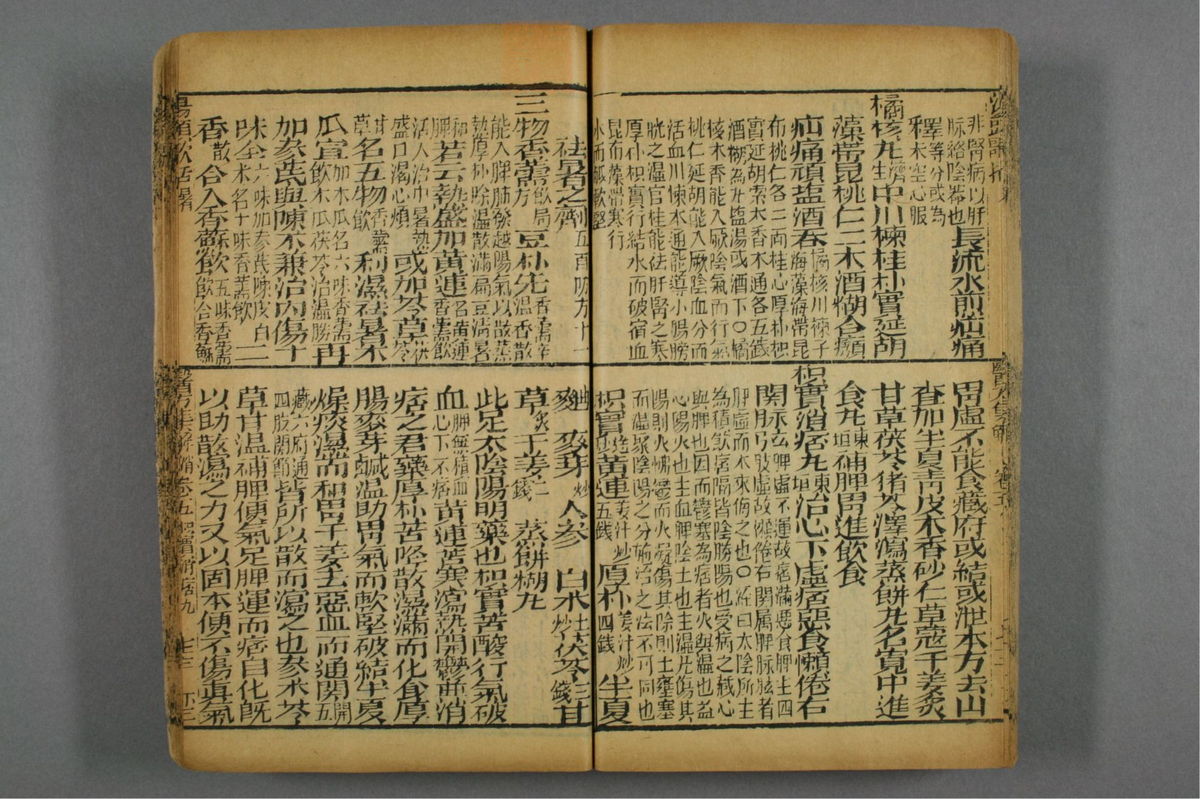 非腎病以肝脉絡陰器也長流水煎疝痛
橘核丸濟生中川楝桂朴實延胡
藻帶昆桃仁二木酒糊合癩
疝痛頑塩酒吞橘核川楝子海藻海帶昆
布桃仁各二兩桂心厚朴枳
實延胡索木香木通各五錢
酒糊為丸塩湯或酒下○橘
核木香能入厥陰氣而行氣
桃仁延胡能入厥陰血分而
活血川楝木通能導小腸膀
胱之濕官桂能祛肝腎之寒
厚朴枳實行結水而破宿血
昆而藻帶寒行
水而鹹軟堅
胃虛不能食藏府或結或泄本方去山
查加半夏青皮木香砂仁草蔻干姜炙
甘草茯苓猪苓澤瀉蒸餅丸名寬中進
食丸東垣補脾胃進飲食
枳實消痞丸東垣治心下虛痞惡食懶倦右
關脉弦脾虛不運故痞滿惡食脾主四肢虛故懶倦右関属脾脉弦者
脾虛而木來侮之也○經曰太陰所生
為積飲痞隔皆陰勝陽也受病之藏心
與脾也因而鬱塞為痞者火與濕也盖
心陽火也主血脾陰土也主湿凡傷其
陽則火怫鬱而火凝傷其陰則土壅塞
而濕聚陰陽之分施治之法不可同也
枳實麩炒黃連姜汁炒五錢厚朴姜汁炒四錢半夏
祛暑之劑五首附方十一
三物香薷飲局方豆朴先香薷辛溫香散
能入脾肺發越陽氣以散蒸
熱厚朴除濕散滿扁豆清暑
和脾若云熱盛加黃連名黃連香薷飲
活人治中暑熱盛口渴心煩或加苓草茯苓
甘草名五物香薷飲利濕祛暑木
瓜宣加木瓜名六味香薷飲木瓜茯苓治濕勝再
加參芪與陳朮兼治內傷十
味全六味加參芪陳皮白朮名十味香薷飲二
香散合入香蘇飲五味香薷飲合香蘇
麯炒麥芽炒人參白朮土炒茯苓三錢甘
草炙干姜二錢蒸餅糊丸
此足太陰陽明藥也枳實苦酸行氣破
血脾無積血心下不痞黃連苦寒瀉熱開鬱並消
痞之君藥厚朴苦降散濕滿而化食厚
腸麥芽鹹温助胃氣而軟堅破結半夏
燥痰濕而和胃干姜去惡血而通関開五
藏六府通四肢関節皆所以散而瀉之也參朮苓
草甘温補脾使氣足脾運而痞自化既
以助散瀉之力又以固本使不傷真氣
湯頭歌括暑
醫方集解消卷五枳實消痞丸七三下三